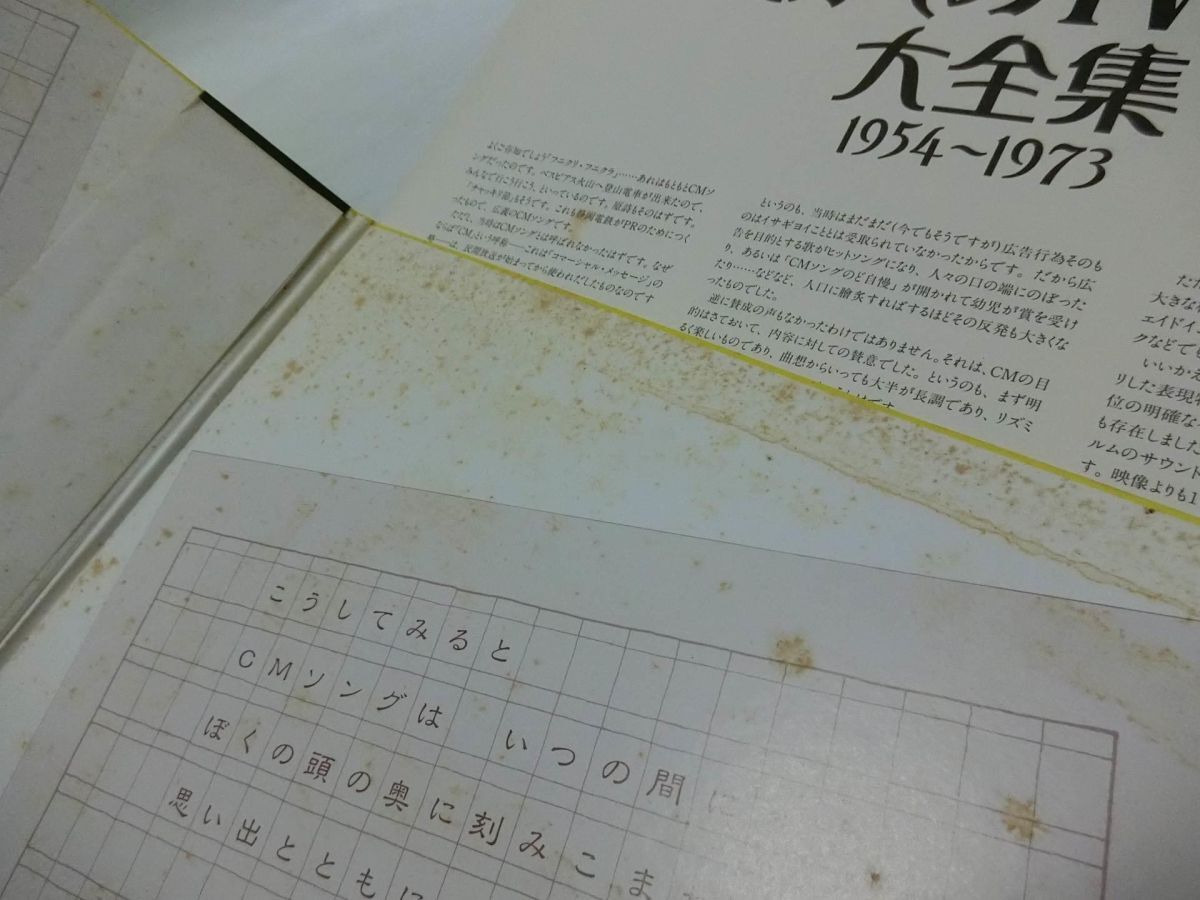 大全集
1954~1973
よくご存知でしょう「フニクリ・フニクラ」……あれはもともとCMソ
ングだったのです。ベスビアス火山へ登山電車が出来たので、
みんなで行こう行こう、といっているのです。原詩もそのはずです。
「チャッキリ節」もそうです。これも静岡電鉄がPRのためにつく
ったもので、広義のCMソングです。
ただし、当時はCMソングとは呼ばれなかったはずです。なぜ
ならば「CM」という呼称――これは「コマーシャル・メッセージ」の
略――は、民間放送が始まってから使われだしたものなのです
というのも、当時はまだまだ(今でもそうですが)広告行為そのも
のはイサギヨイこととは受取られていなかったからです。だから広
告を目的とする歌がヒットソングになり、人々の口の端にのぼった
り、あるいは「CMソングのど自慢」が開かれて幼児が賞を受け
たり……などなど、人口に膾炙すればするほどその反発も大きくな
ったものでした。
逆に賛成の声もなかったわけではありません。それは、CMの目
的はさておいて、内容に対しての賛意でした。というのも、まず明
るく楽しいものであり、曲想からいっても大半が長調であり、リズミ
大きな
ェイドイ
クなどで
いいかえ
リした表現
位の明確な
も存在しました
ルムのサウンド
す。映像よりも1
こうしてみると
CMソングは いつの間に
ぼくの頭の奥に刻みこま
思い出とともに